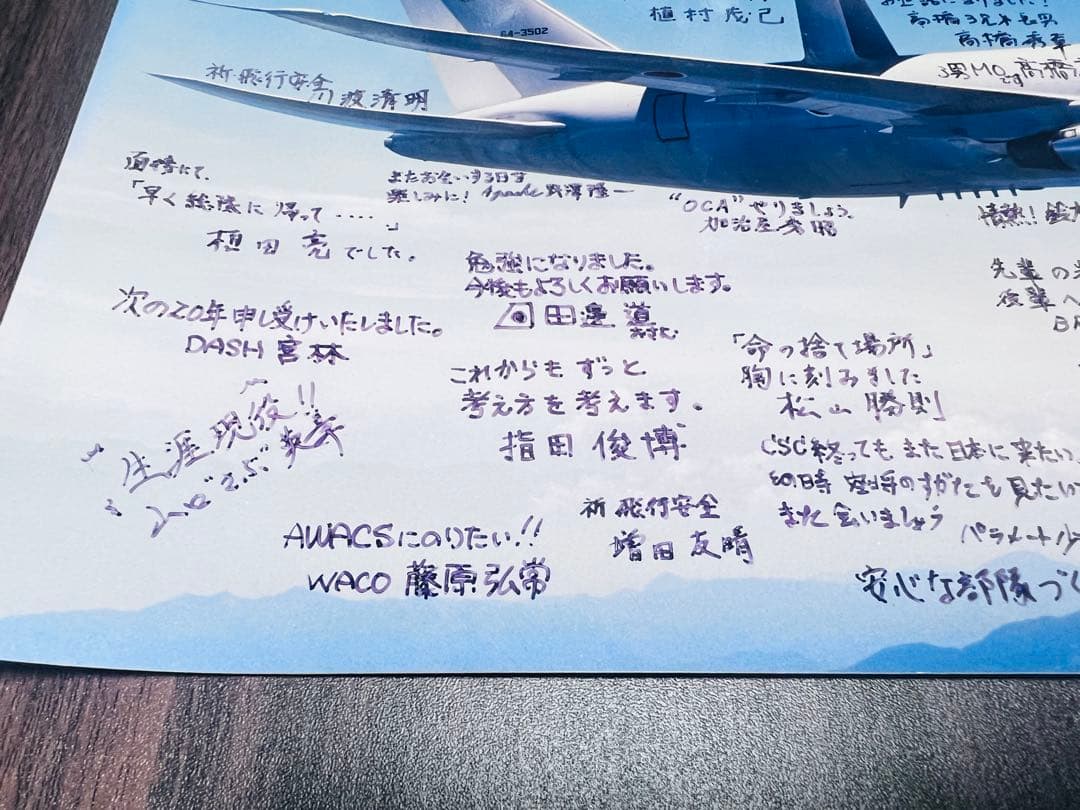 植村茂己
お世話になりました!
高橋3兄弟長男
高橋秀幸
3男MO
64-3502
祈飛行安全
川波清明
面接にて、
「早く総隊に帰って‥‥」
植田亮でした。
またお会いする日を
楽しみに! Apache
"OCA"やりましょう
加治屋秀昭
情熱!
勉強になりました。
今後もよろしくお願いします。
田邊道
次の20年申し受けいたしました。
DASH 宮林
先輩の
後輩へ
これからもずっと
考え方を考えます。
指田俊博
「命の捨て場所」
胸に刻みました
松山勝則
生涯現役!!
"2.5"
CSC終ってもまた日本に来たい、
の時空将のすがたを見たい
また会いましょう
祈飛行安全
増田友晴
AWACSにのりたい!!
WACO 藤原弘常
安心な部隊づく